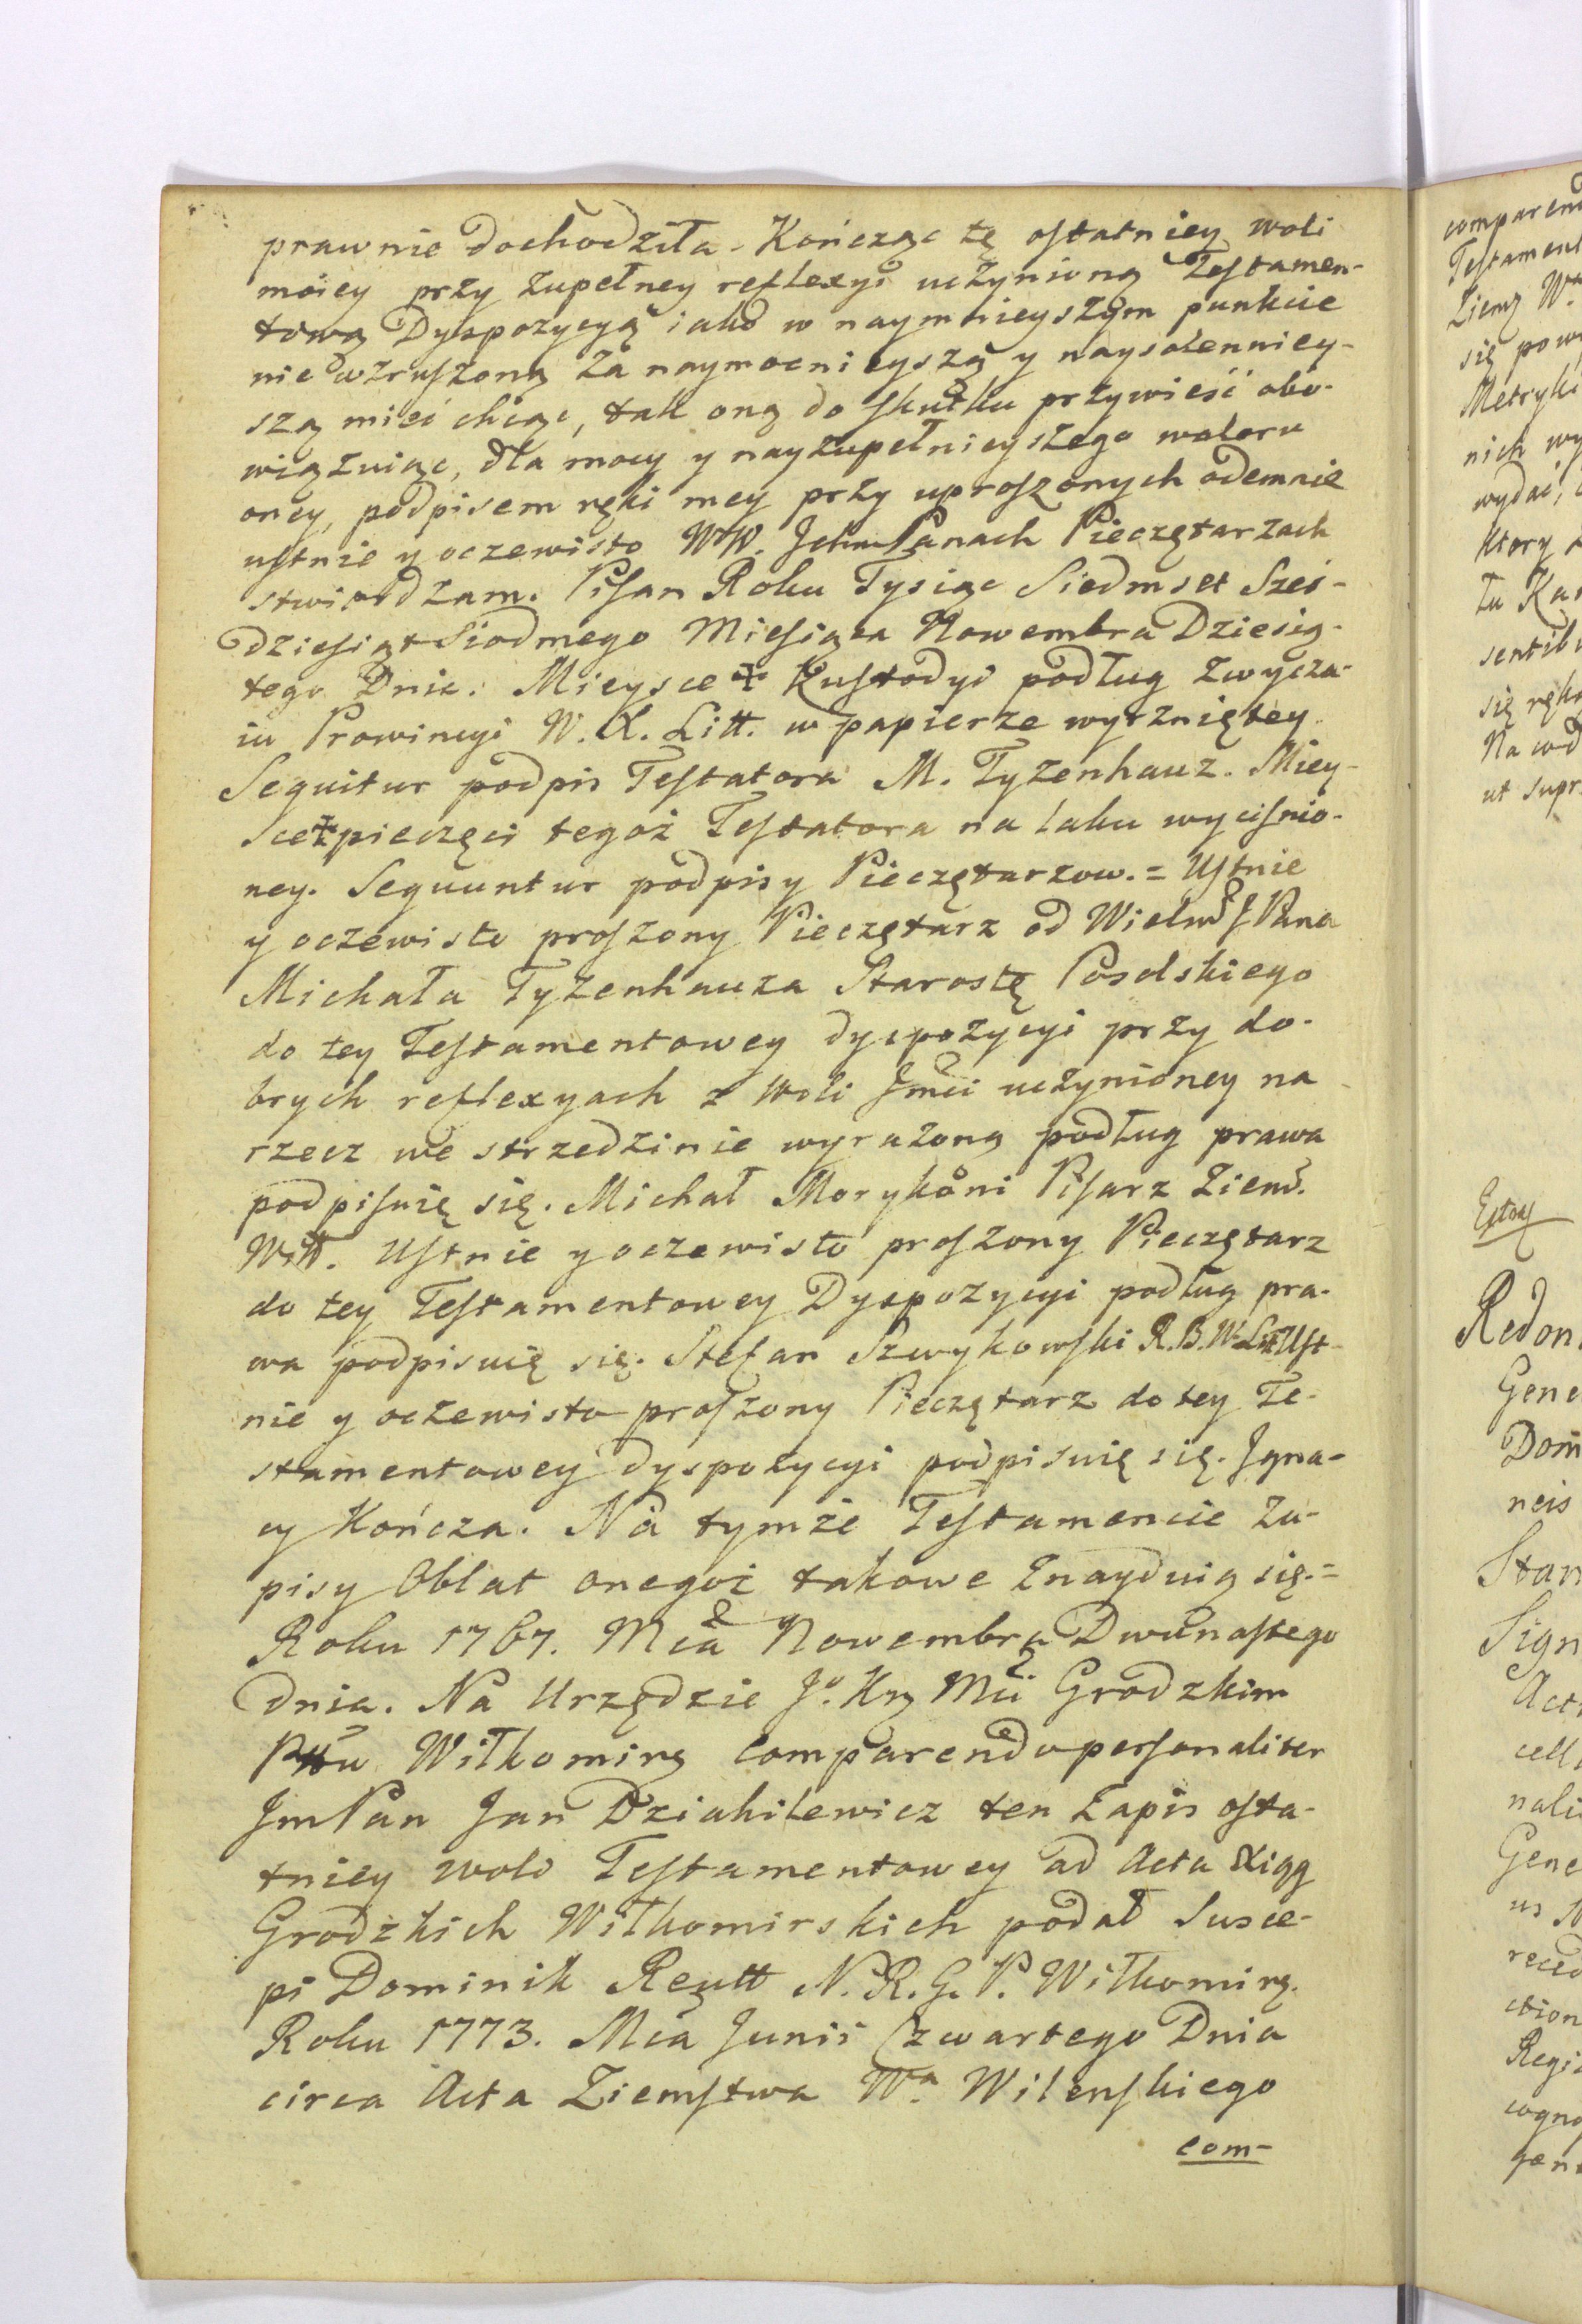 prawnie dochodziła. Kończąc tę ostatniey woli
moiey przy zupełney reflexyi uczynioną Testamen-
tową Dyspozycyą iako w naymnieyszym punkcie
nie wzruszoną za naymocnieyszą y naysolenniey-
szą mieć chcąc, tak oną do skutku przywieść obo-
wiązuiąc, dla mocy y nayzupełnieyszego waloru
oney, podpisem ręki mey przy uproszonych odemnie
ustnie y oczewisto WW. Jchm Panach Pieczętarzach
stwierdzam. Pisan Roku Tysiąc Siedmset Sześ-
dziesiąt Siodmego Miesiąca Nowembra Dziesią-
tego Dnia. Mieysce ✠ Kustodyi podług zwycza-
iu Prowincyi W. X. Litt. w papierze wyrzniętey.
Sequitur podpis Testatora M. Tyzenhauz. Miey-
sce ✠ pieczęci tegoż Testatora na laku wyciśnio-
ney. Sequuntur podpisy Pieczętarzow. = Ustnie
y oczewisto proszony Pieczętarz od Wielmo J Pana
Michała Tyzenhauza Starostę Poselskiego
do tey Testamentowey dyspozycyi przy do-
brych reflexyach z Woli Jmci uczynioney na
rzecz we strzedzinie wyrażoną podług prawa
podpisuię się. Michał Morykoni Pisarz Ziem.
Witt. Ustnie y oczewisto proszony Pieczętarz
do tey Testamentowey Dyspozycyi podług pra-
wa podpisuię się. Stefan Szwykowski R. B. W. Litt Ust-
nie y oczewisto proszony Pieczętarz do tey Te-
stamentowey dyspozycyi podpisuię się. Jgna-
cy Kończa. Na tymże Testamencie Za-
pisy Oblat onegoż takowe znayduią się. =
Roku 1767. Mca Nowembra Dwunastego
dnia. Na Urzędzie Jo. Kr Mci Grodzkim
Pttu Wiłkomirg comparendo personaliter
Jm Pan Jan Dziakilewicz ten Zapis osta-
tniey woli Testamentowey ad Acta Xiąg
Grodzkich Wiłkomirskich podał Susce-
pi Dominik Reutt N. R. G. P. Wiłkomirg.
Roku 1773. Mca Junii Czwartego Dnia
circa Acta Ziemstwa Wa. Wilenskiego
com-
comparend
Testament
Ziemg Wa
się pow
Metryki
nich wy
wydać,
ktory
sentib
się ręko
ut supr
Redon
Gene
Dom
neis
Stan
Sign
Act
cell
nali
Gene
us
rece
ction
Regi
cogno